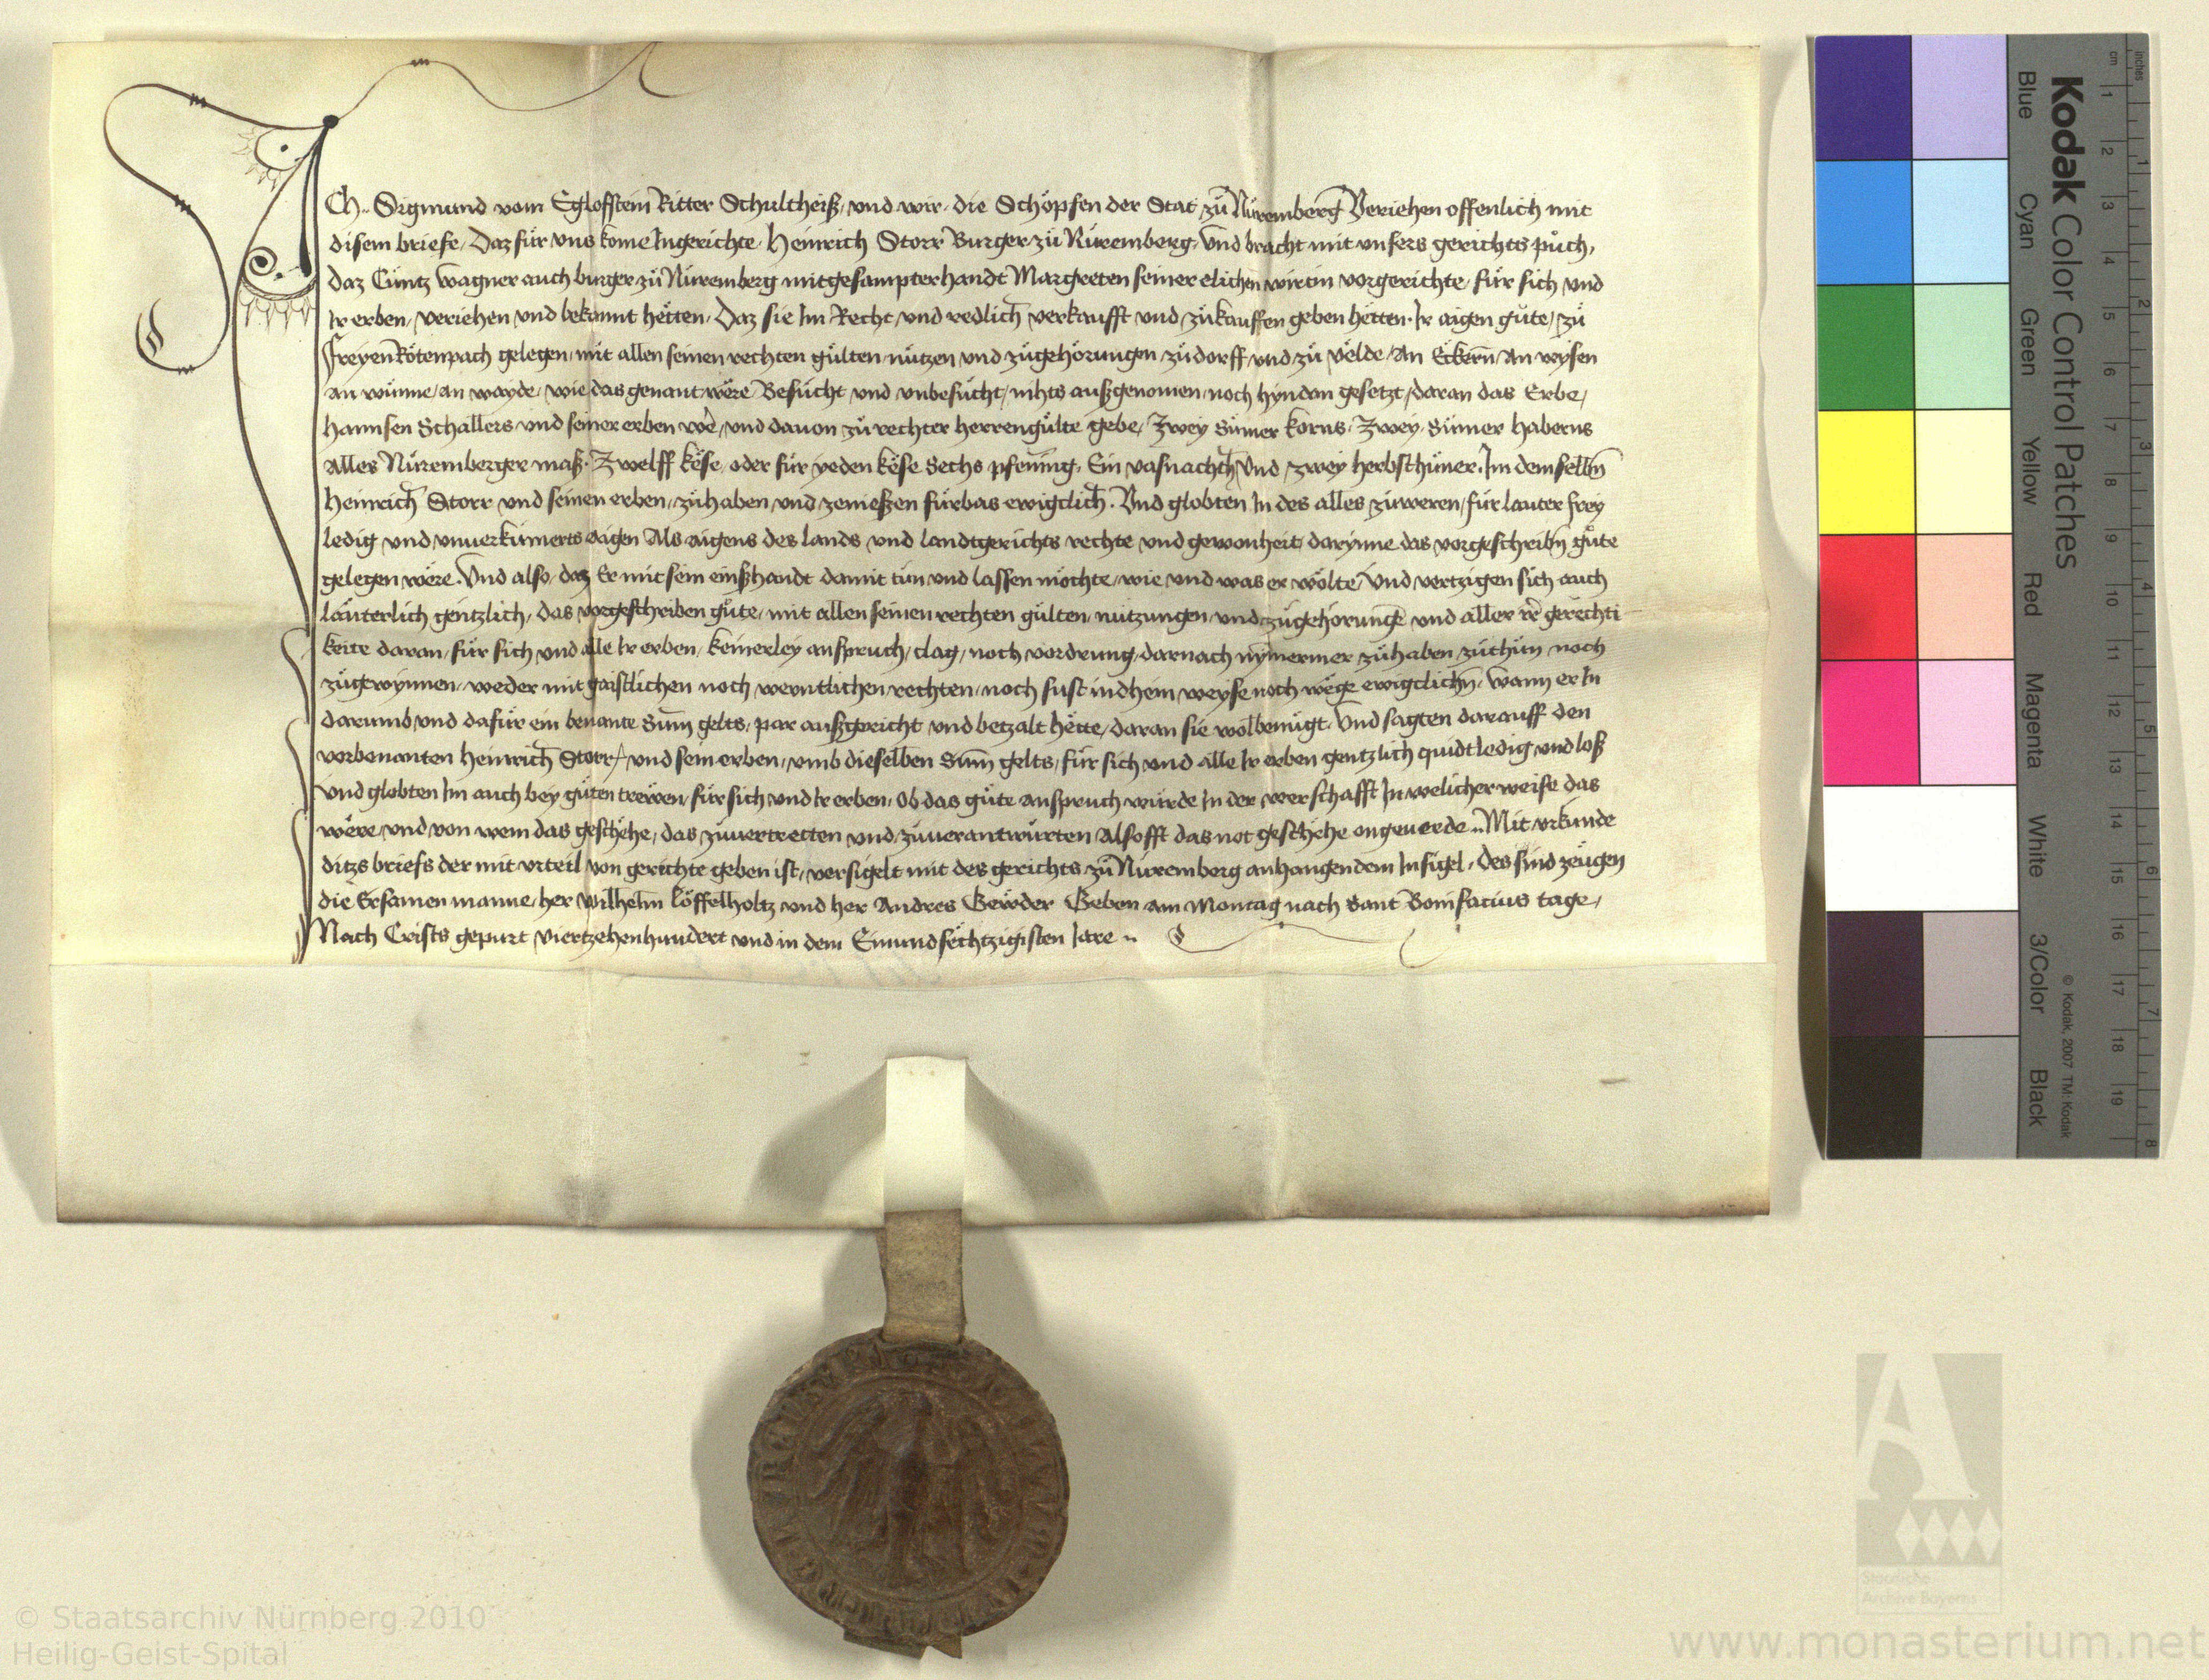 ICh. Sigmund vom Egloffstein Ritter Schultheiß, und wir die Schöpfen der Stat zů Nůremberg Veriehen offenlich mit
disem briefe, Daz für uns kome Ingerichte, Heinrich Storr Burger zů Nůremberg, Und bracht mit unsers gerichts půch,
daz Cuntz Wagner auch burger zů Nůremberg mitgesampterhandt Margreten seiner elichen wirtin vorgerichte, für sich und
Ir erben, veriehen und bekannt hëtten, Daz sie Im Recht, und redlich verkaufft und zůkauffen geben hëtten. Ir aigen gůte, zů
Freyen Rötenpach gelegen, mit allen seinen rechten gülten nützen und zůgehörungen zů dorff und zů velde, An Eckern An wysen
an wünne, an wayde, wie das genant wëre Besůcht und unbesůcht, nihts außgenomen, noch hyndan gesetzt, daran das Erbe,
hannsen Schallers und seiner erben wer, und davon zů rechter herrengülte gebe, Zwey Sümer korns, Zwey Sümer haberns
Alles Nůremberger maß. Zwelff këse, oder für yeden këse Sechs pfening, Ein vasnachth Und zwey herbsthüner. Im demselbn
Heinrich Storr und seinen erben, zůhaben und zenießen fürbas ewigclich. Und globten In des alles zůweren, für lauter frey
ledig und unverkümerts aigen Als aigens des lands und landtgerichts rechte und gewonheit, darynne das vorgeschribn gůte
gelegen wëre. Und also, daz Er mit sein einßhandt damit tůn und lassen möchte, wie und was er wölte, Und vertzigen sich auch
lauterlich gentzlich, das vorgeschriben gůte, mit allen seinen rechten gülten, nutzungen, und zůgehörunge und aller irer gerechti
keite daran, für sich und alle Ir erben, keinerley anspruch, clag, noch vordrung, darnach nymermer zůhaben, zůthun noch
zůgewynnen, weder mit gaistlichen noch werntlichen rechten, noch sust in dhein weyse noch wëge ewigclichn, Wann er In
darumb und dafür ein benante Sum gelts, par außgericht und betzalt hëtte, daran sie wol benügt, Und sagten darauff den
vorbenanten Heinrich Storr, und sein erben, umb dieselben Sum gelts, für sich und alle Ir erben gentzlich quidt ledig und loß
Und globten Im auch bey gůten trewen, für sich und Ir erben, Ob das gůte anspruch würde In der werschafft In welicher weise das
wëre, und von wem das geschëhe, das zůvertretten und zůverantwürten Alsofft das not geschëhe ongeverde. Mit urkunde
ditzs briefs der mit urteil von gerichte geben ist, versigelt mit des gerichts zů Nůremberg anhangendem Insigel, Des sind zeügen
die Ersamen manne, her Wilhelm Löffelholtz und her Andres Gewder Geben am Montag nach Sant Bonifacius tage,
Nach Crists gepurt Viertzehenhundert und in dem Einundsëchtzigisten Jare
Kodak Color Control Patches
Blue Cyan Green Yellow Red Magenta White 3/Color Black
© Kodak, 2007 TM: Kodak
inches 1 2 3 4 5 6 7 8
cm 1 2 3 4 5 6 7 8 9 10 11 12 13 14 15 16 17 18 19
Staatliche
Archive Bayerns
© Staatsarchiv Nürnberg 2010
Heilig-Geist-Spital
www.monasterium.net